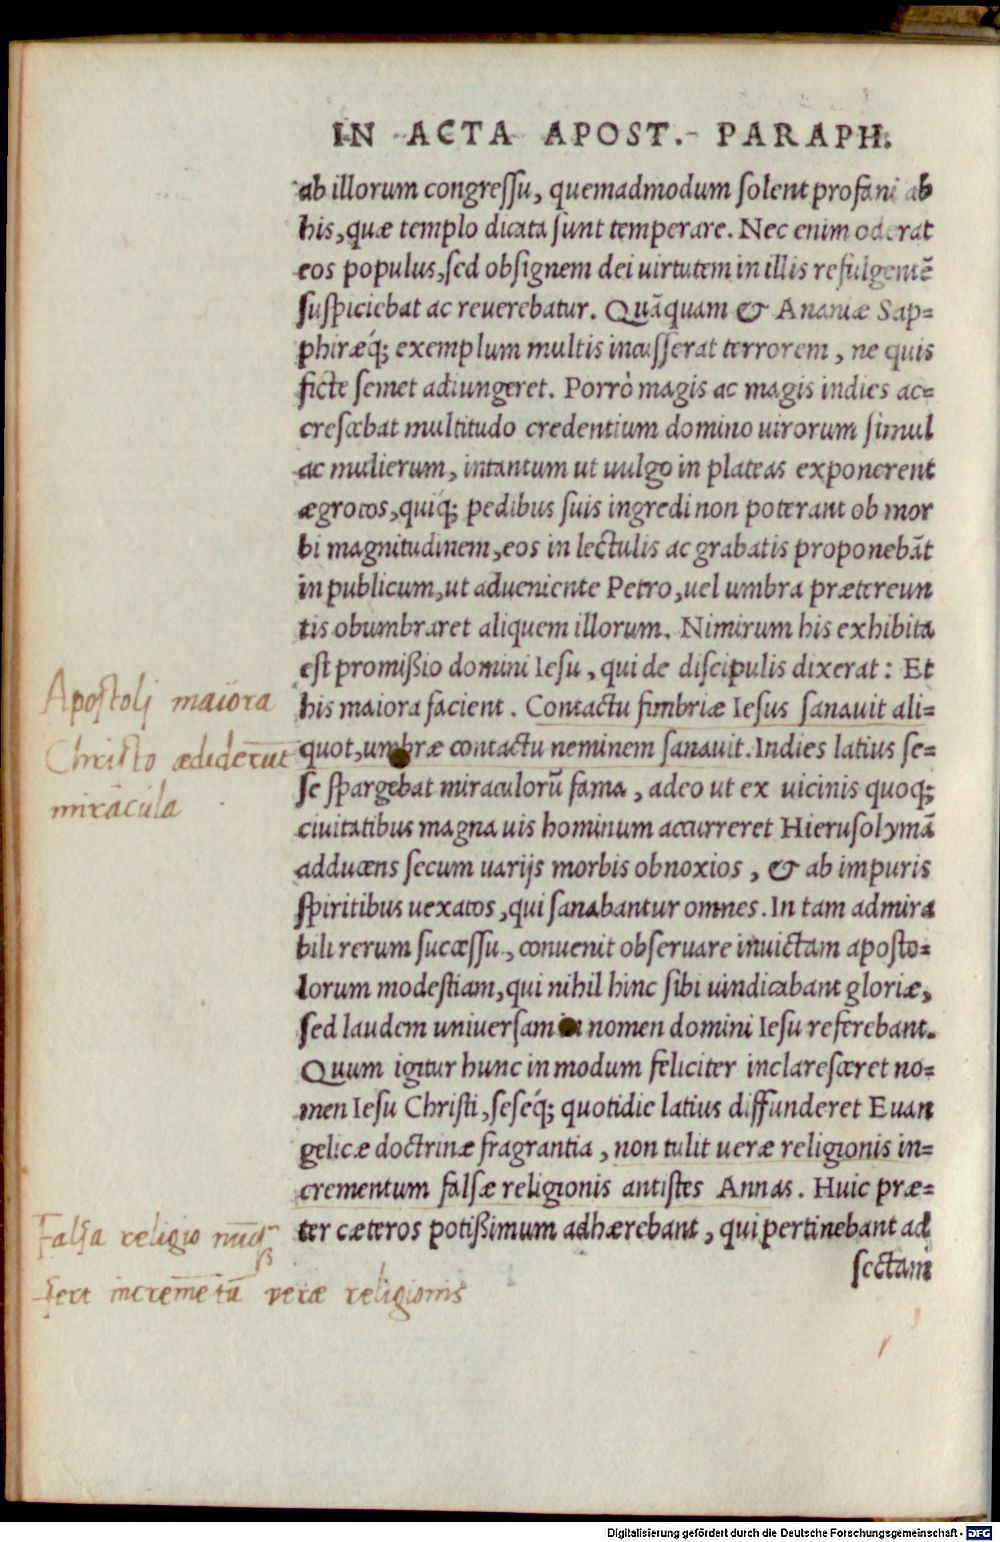 IN ACTA APOST. PARAPH.
ab illorum congressu, quemadmodum solent profani ab
his, quæ templo dicata sunt temperare. Nec enim oderat
eos populus, sed obsignem dei uirtutem in illis refulgentē
suspiciebat ac reuerebatur. Quāquam & Ananiæ Sap=
phiræq́; exemplum multis incusserat terrorem, ne quis
ficte semet adiungeret. Porrò magis ac magis indies ac=
crescebat multitudo credentium domino uirorum simul
ac mulierum, intantum ut uulgo in plateas exponerent
ægrotos, quiq́; pedibus suis ingredi non poterant ob mor
bi magnitudinem, eos in lectulis ac grabatis proponebāt
in publicum, ut adueniente Petro, uel umbra prætereun
tis obumbraret aliquem illorum. Nimirum his exhibita
est promißio domini Iesu, qui de discipulis dixerat: Et
his maiora facient. Contactu fimbriæ Iesus sanauit ali=
quot, umbræ contactu neminem sanauit. Indies latius se=
se spargebat miraculorū fama, adeo ut ex uicinis quoq;
ciuitatibus magna uis hominum accurreret Hierusolymā
adducens secum uarijs morbis obnoxios, & ab impuris
spiritibus uexatos, qui sanabantur omnes. In tam admira
bili rerum successu, conuenit obseruare inuictam aposto=
lorum modestiam, qui nihil hinc sibi uindicabant gloriæ,
sed laudem uniuersam in nomen domini Iesu referebant.
Quum igitur hunc in modum feliciter inclaresceret no=
men Iesu Christi, seseq́; quotidie latius diffunderet Euan
gelicæ doctrinæ fragrantia, non tulit ueræ religionis in=
crementum falsæ religionis antistes Annas. Huic præ=
ter cæteros potißimum adhærebant, qui pertinebant ad
sectam
Apostolj maiora
Christo ædiderūt
miracula
Falsa religio
fert incremētū veræ religionis
Digitalisierung gefördert durch die Deutsche Forschungsgemeinschaft - DFG